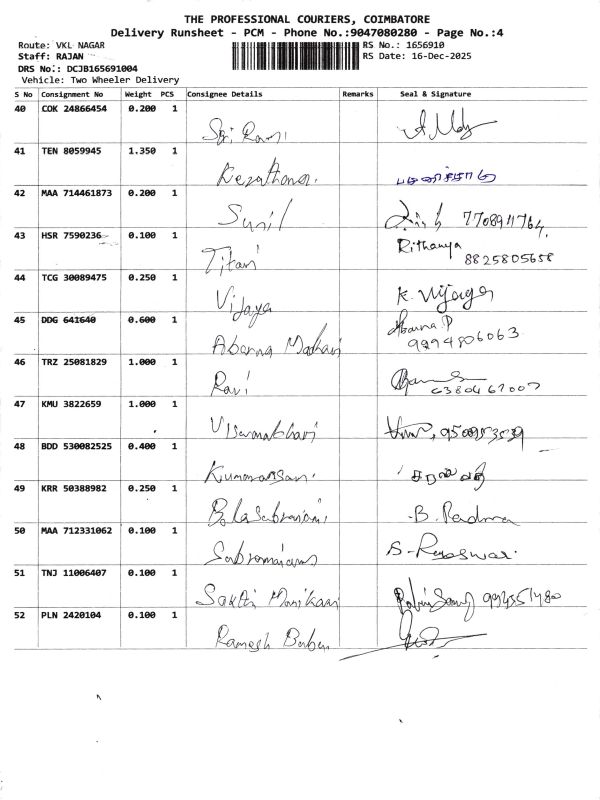 THE PROFESSIONAL COURIERS, COIMBATORE
Delivery Runsheet - PCM - Phone No.:9047080280 - Page No.:4
Route: VKL NAGAR RS No.: 1656910
Staff: RAJAN RS Date: 16-Dec-2025
DRS No.: DCJB165691004
Vehicle: Two Wheeler Delivery
S No Consignment No Weight PCS Consignee Details Remarks Seal & Signature
40 COK 24866454 0.200 1
Sri Rani
41 TEN 8059945 1.350 1
42 MAA 714461873 0.200 1
Sunil
43 HSR 7590236 0.100 1 Rithanya
Titani 8825805658
44 TCG 30089475 0.250 1
Vijaya K. Vijaya
45 DDG 641640 0.600 1 Abarna.P
Abarna Madhavi 9294806063
46 TRZ 25081829 1.000 1
Ravi 6380467007
47 KMU 3822659 1.000 1
48 BDD 530082525 0.400 1
49 KRR 50388982 0.250 1
B. Padma
50 MAA 712331062 0.100 1
51 TNJ 11006407 0.100 1
52 PLN 2420104 0.100 1
Ramesh Babu